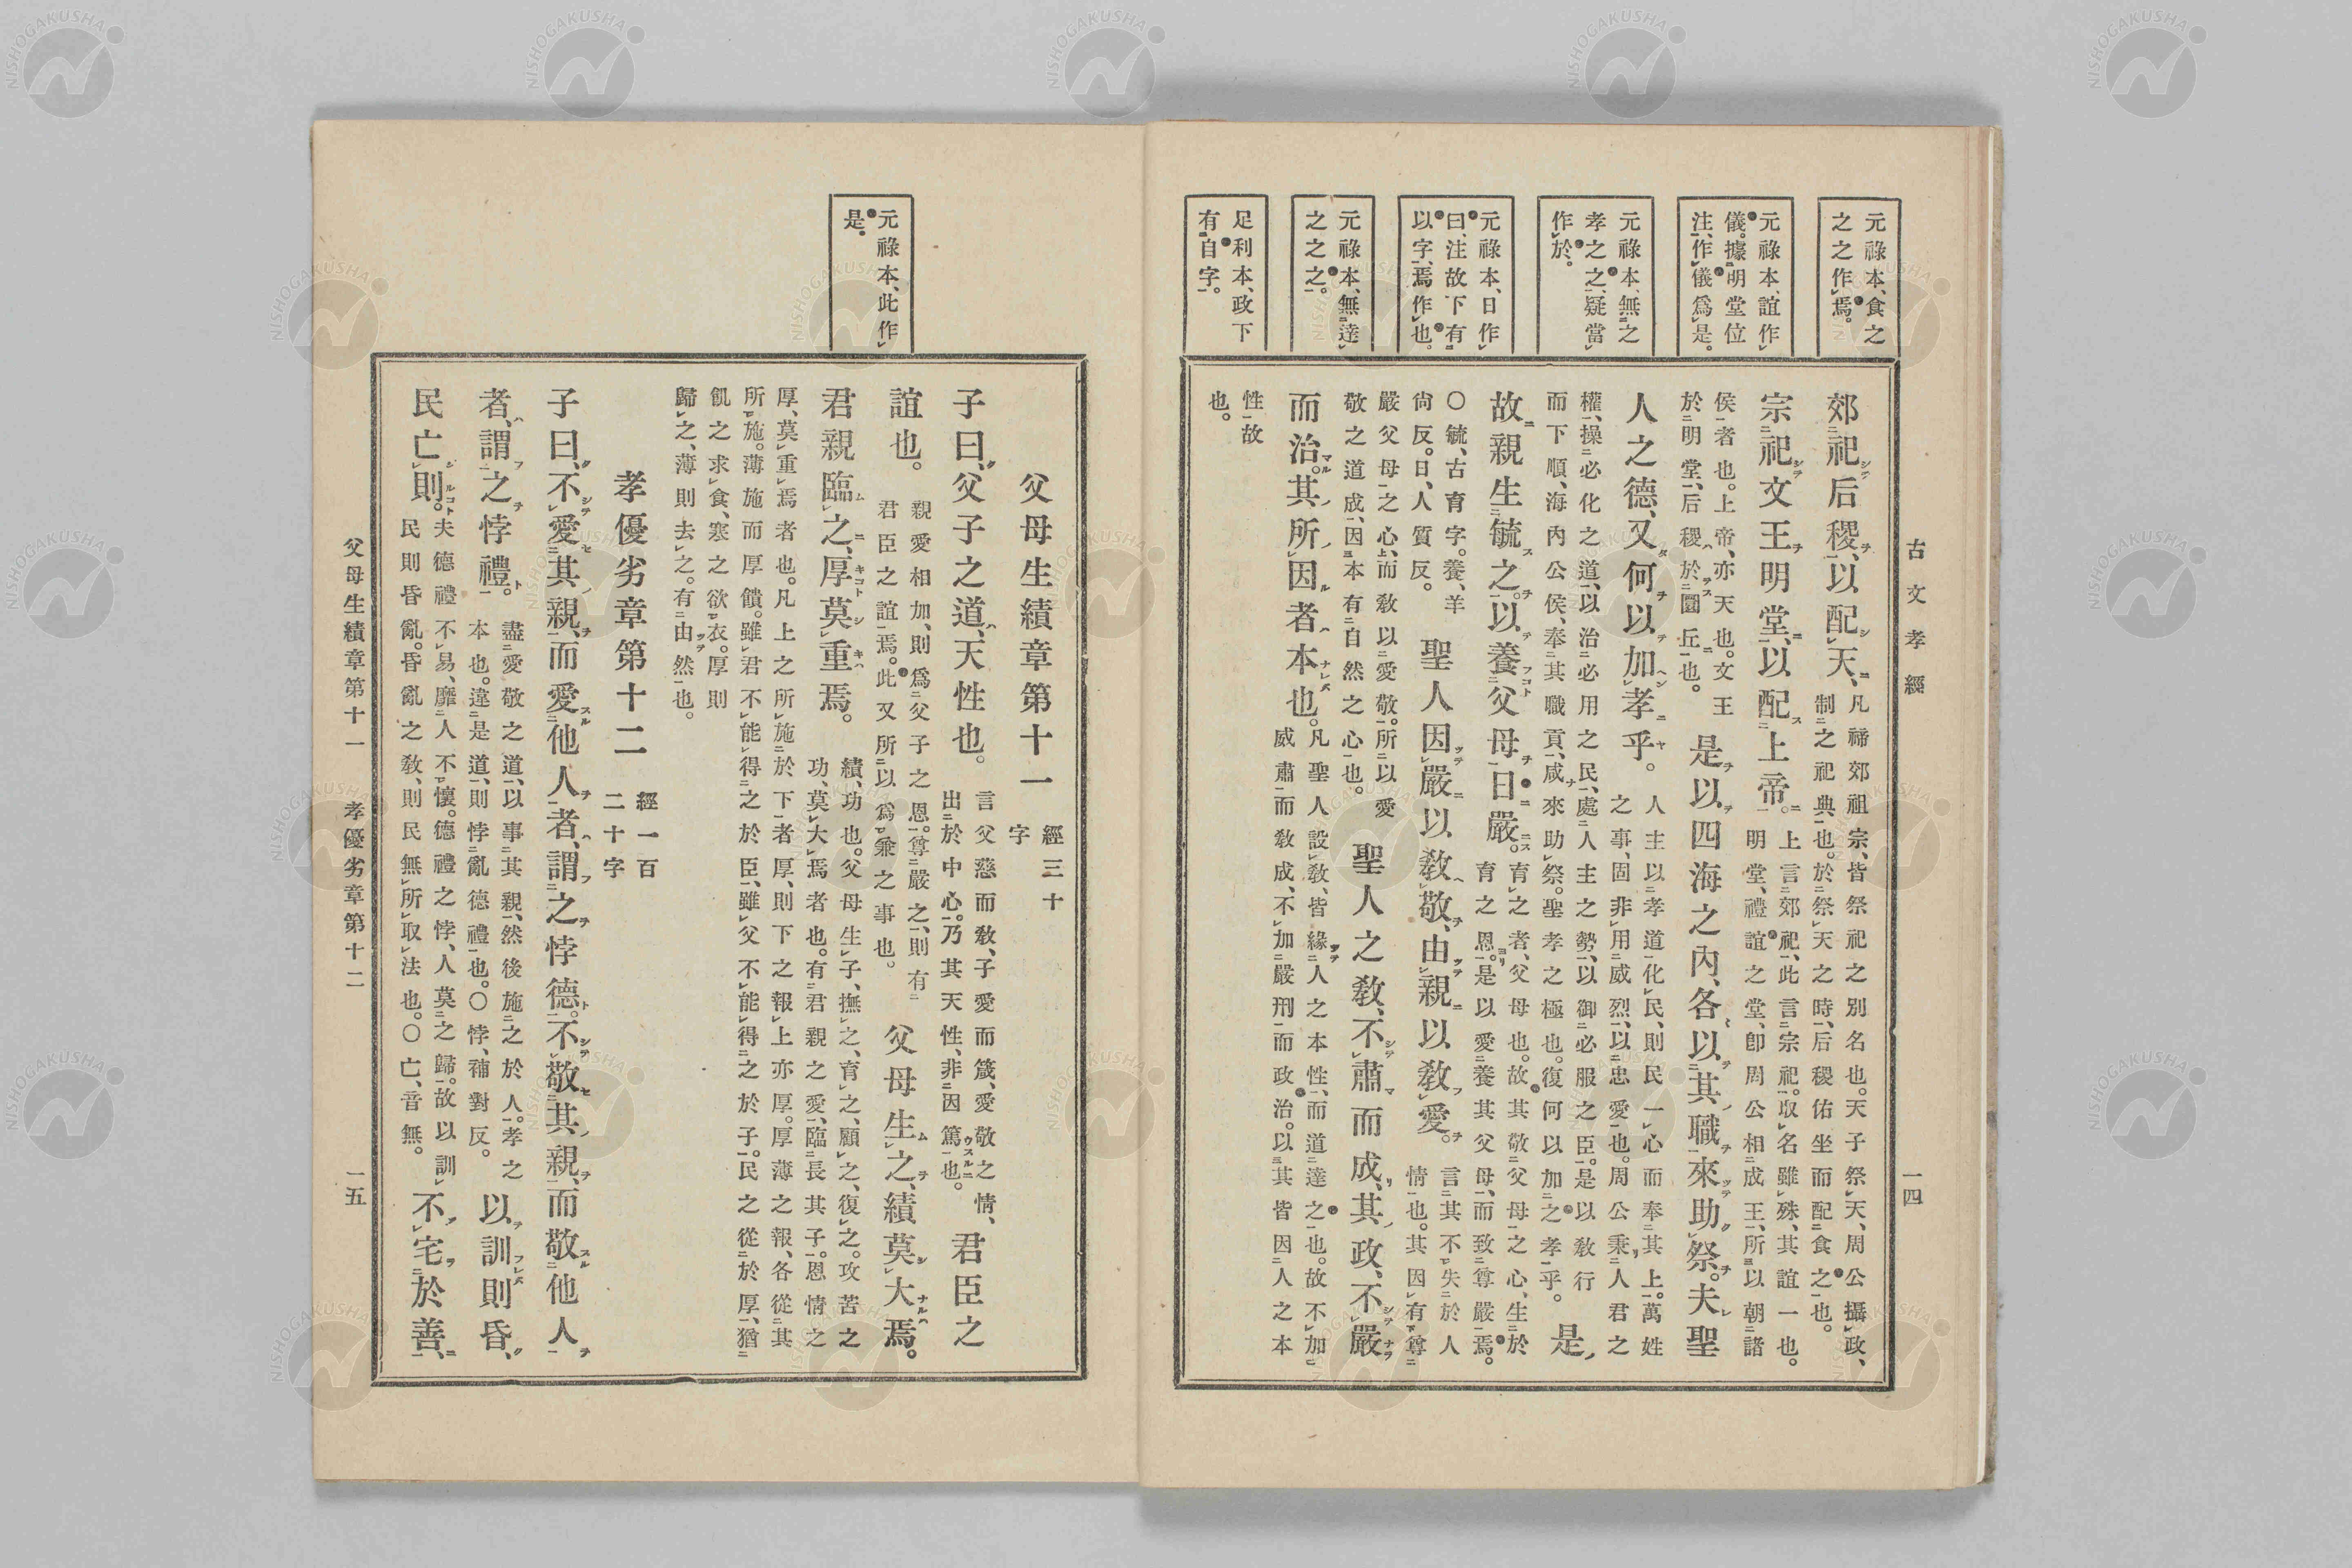 元祿本、食之
之之作焉。
元祿本、誼作
儀。據明堂位
注、作儀爲是。
元祿本、無之
孝之之、疑當
作於。
元祿本、日作
曰、注故下有
以字、焉作也。
元祿本、無達
之之之。
足利本、政下
有自字。
古文孝經
一四
郊祀后稷、以配天、
凡禘郊祖宗、皆祭祀之別名也。天子祭天、周公攝政、
制之祀典也。於祭天之時、后稷佑坐而配食之也。
宗祀文王明堂、以配上帝。
上言郊祀、此言宗祀。取名雖殊、其誼一也。
明堂、禮誼之堂、卽周公相成王、所以朝諸
侯者也。上帝、亦天也。文王
於明堂、后稷於圜丘也。
是以四海之內、各以其職來助祭。夫聖
人之德、又何以加孝乎。
人主以孝道化民、則民一心而奉其上。萬姓
之事、固非用威烈、以忠愛也。周公秉人君之
權、操必化之道、以治必用之民、處人主之勢、以御必服之臣。是以敎行
而下順、海內公侯、奉其職貢、咸來助祭。聖孝之極也。復何以加之孝乎。
是
故親生毓之。以養父母日嚴。
育之者、父母也。故其敬父母之心、生於
育之恩。是以愛養其父母、而致尊嚴焉。
○毓、古育字。養、羊
尙反。日、人質反。
聖人因嚴以敎敬、由親以敎愛。
言其不失於人
情也。其因有尊
嚴父母之心、而敎以愛敬。所以愛
敬之道成、因本有自然之心也。
聖人之敎、不肅而成、其政、不嚴
而治。其所因者本也。
凡聖人設敎、皆緣人之本性、而道達之也。故不加
威肅而敎成、不加嚴刑而政治。以其皆因人之本
性故
也。
元祿本、此作
是。
父母生績章第十一
經三十
字
子曰、父子之道、天性也。
言父慈而敎、子愛而箴、愛敬之情、
出於中心。乃其天性、非因篤也。
君臣之
誼也。
親愛相加、則爲父子之恩。尊嚴之、則有
君臣之誼焉。此又所以爲兼之事也。
父母生之、績莫大焉。
君親臨之、厚莫重焉。
績、功也。父母生子、撫之、育之、顧之、復之。攻苦之
功、莫大焉者也。有君親之愛、臨長其子。恩情之
厚、莫重焉者也。凡上之所施於下者厚、則下之報上亦厚。厚薄之報、各從其
所施。薄施而厚饋。雖君不能得之於臣、雖父不能得之於子。民之從於厚、猶
飢之求食、寒之欲衣。厚則
歸之、薄則去之。有由然也。
孝優劣章第十二
經一百
二十字
子曰、不愛其親、而愛他人者、謂之悖德。不敬其親、而敬他人
者、謂之悖禮。
盡愛敬之道、以事其親、然後施之於人。孝之
本也。違是道、則悖亂德禮也。○悖、補對反。
以訓則昏、
民亡則。
夫德禮不易、靡人不懷。德禮之悖、人莫之歸。故以訓
民則昏亂。昏亂之敎、則民無所取法也。○亡、音無。
不宅於善、
父母生績章第十一　孝優劣章第十二
一五
NISHOGAKUSHA